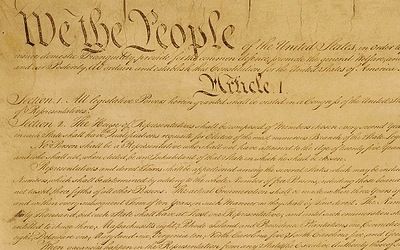 We the People of the United States, in Order to
insure domestic Tranquility, provide for the common defence, promote the general Welfare, and
and our Posterity, do ordain and establish this Constitution for the United States of America
Article. I.
Section. 1. All legislative Powers herein granted shall be vested in a Congress of the United States
of Representatives.
Section. 2. The House of Representatives shall be composed of Members chosen every second Year
in each State shall have the Qualifications requisite for Electors of the most numerous Branch of the State
No Person shall be a Representative who shall not have attained to the Age of twenty five Years
and who shall not, when elected, be an Inhabitant of that State in which he shall be chosen.
Representatives and direct Taxes shall be apportioned among the several States which may be
Numbers, which shall be determined by adding to the whole Number of free Persons, including those
not taxed, three fifths of all other Persons. The actual Enumeration shall be made within three Years
and within every subsequent Term of ten Years, in such Manner as they shall by Law direct. The
thirty Thousand, but each State shall have at Least one Representative; and until such enumeration
entitled to chuse three, Massachusetts eight, Rhode Island and Providence Plantations one, Connecticut